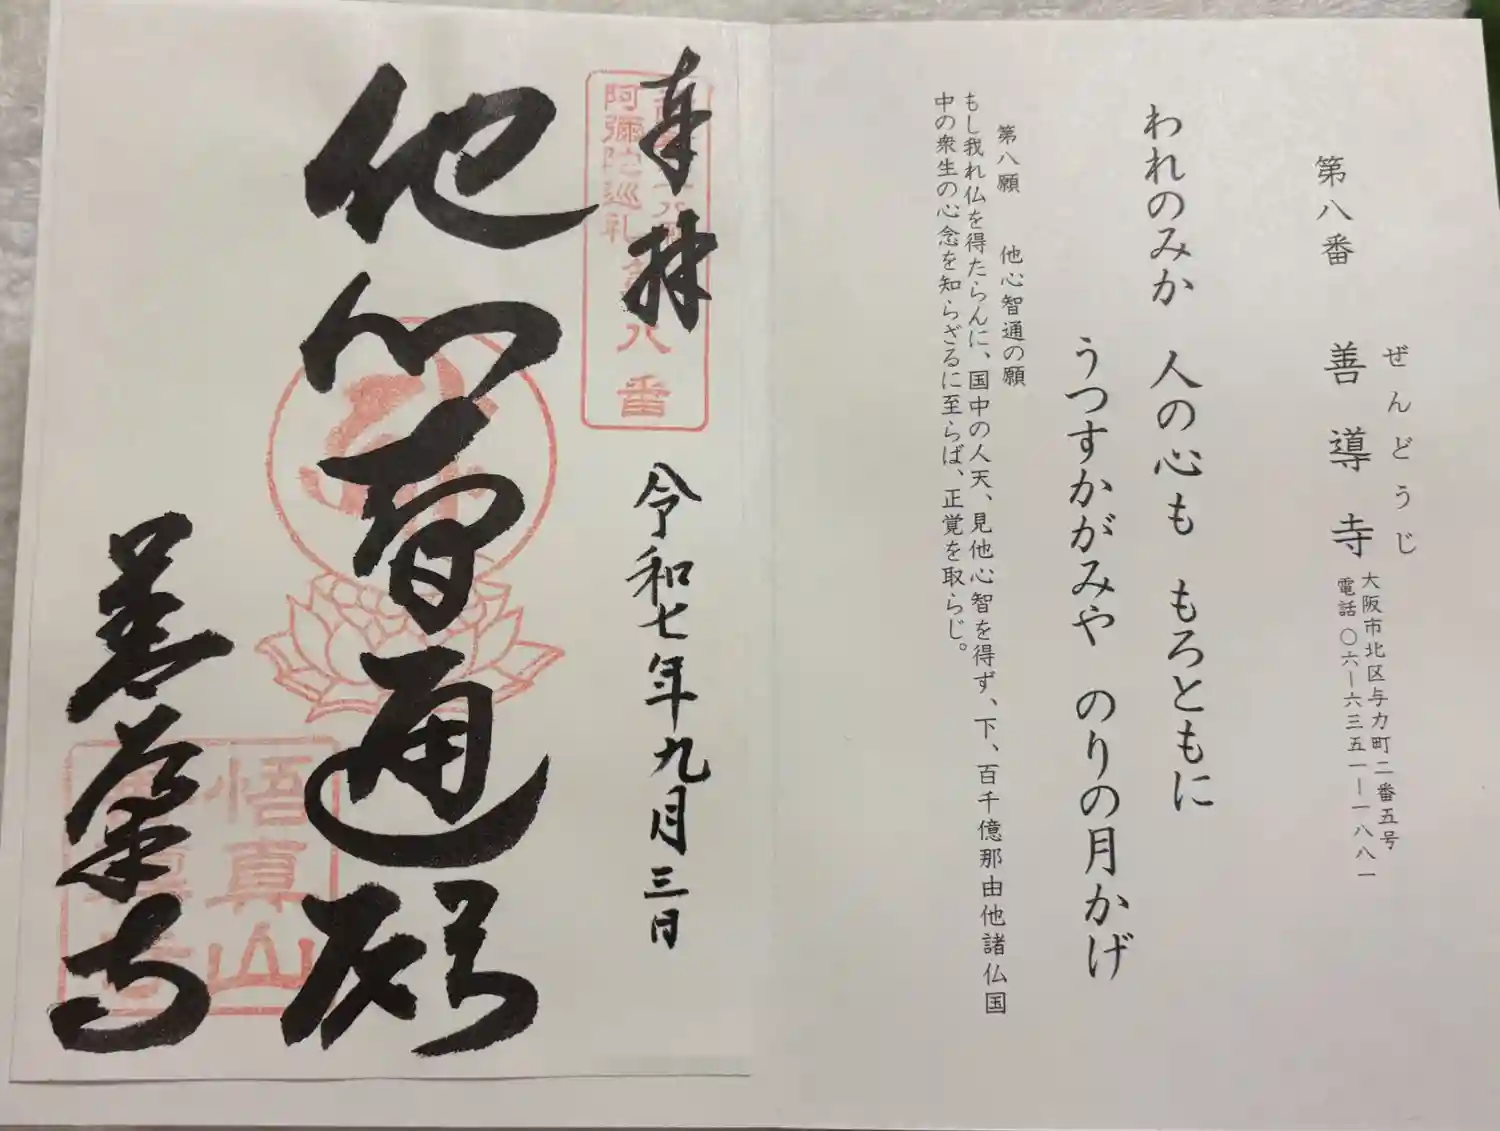 第八番
ぜんどうじ
善導寺
大阪市北区与力町二番五号
電話〇六ー六三五一ー一八八一
われのみか 人の心も もろともに
うつすかがみや のりの月かげ
第八願 他心智通の願
もし我れ仏を得たらんに、国中の人天、見他心智を得ず、下、百千億那由他諸仏国
中の衆生の心念を知らざるに至らば、正覚を取らじ。
奉拝
阿彌陀巡礼
八番
令和七年九月三日
他心智通願
善導寺
悟真山